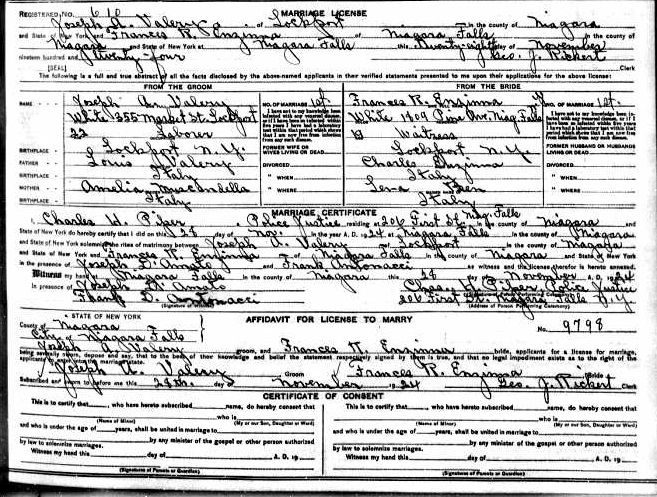 REGISTERED NO. 610 MARRIAGE LICENSE
Joseph A. Valery of Lockport in the county of Niagara
and State of New York and Frances R. Enzinna of Niagara Falls in the county of
Niagara and State of New York at Niagara Falls this Twenty-eighth day of November
nineteen hundred and Twenty-four Geo. J. Rickert Clerk
[SEAL]
The following is a full and true abstract of all the facts disclosed by the above-named applicants in their verified statements presented to me upon their applications for the above license:
FROM THE GROOM FROM THE BRIDE
NAME Joseph Valery NO. OF MARRIAGE 1st Frances R. Enzinna NO. OF MARRIAGE 1st
White 355 Market St. Lockport White 1409 Pine Ave. Niag. Falls
22 Laborer Waitress
BIRTHPLACE Lockport N.Y. FORMER WIFE OR WIVES LIVING OR DEAD Lockport N.Y. FORMER HUSBAND OR HUSBANDS LIVING OR DEAD
FATHER Louis Valery DIVORCED Charles Enzinna DIVORCED
BIRTHPLACE Italy " WHEN Italy " WHEN
MOTHER Amelia " WHERE Lena " WHERE
BIRTHPLACE Italy Italy
MARRIAGE CERTIFICATE
I, Charles H. Piper a Police Justice residing at 206 First St. Niag. Falls in the county of Niagara and
State of New York do hereby certify that I did on this 28 day of Nov. in the year A. D. 1924 at Niagara Falls in the county of Niagara
and State of New York solemnize the rites of matrimony between Joseph A. Valery of Lockport in the county of Niagara
and State of New York and Frances R. Enzinna of Niagara Falls in the county of Niagara and State of New York
in the presence of Joseph D. Amato and Frank Antonacci as witness and the license therefor is hereto annexed.
Witness my hand at Niagara Falls in the county of Niagara this 28 day of November A. D. 1924
In presence of Joseph D. Amato Chas. H. Piper, Police Justice
Frank D. Antonacci 206 First St. Niagara Falls N.Y.
(Signature of Witness) (Address of Person Performing Ceremony)
STATE OF NEW YORK AFFIDAVIT FOR LICENSE TO MARRY
County of Niagara No. 9798
City of Niagara Falls
Joseph A. Valery groom, and Frances R. Enzinna bride, applicants a license for marriage,
being severally sworn, depose and say, that to the best of their knowledge and belief the statement respectively signed by them is true, and that no legal impediment exists as to the right of the
applicants to enter into the marriage state.
Joseph A. Valery Groom Frances R. Enzinna Bride
Subscribed and sworn to before me this 28th. day of November 1924 Geo. J. Rickert Clerk
CERTIFICATE OF CONSENT
This is to certify that , who have hereto subscribed name, do hereby consent that This is to certify that , who have hereto subscribed name, do hereby consent that
who is who is
(Name of Minor) (My or our Son, Daughter or Ward) (Name of Minor) (My or our Son, Daughter or Ward)
and who is under the age of years, shall be united in marriage to and who is under the age of years, shall be united in marriage to
by any minister of the gospel or other person authorized by any minister of the gospel or other person authorized
by law to solemnize marriages. by law to solemnize marriages.
Witness my hand this day of A. D. 19 Witness my hand this day of A. D. 19
(Signatures of Parents or Guardian) (Signatures of Parents or Guardian)